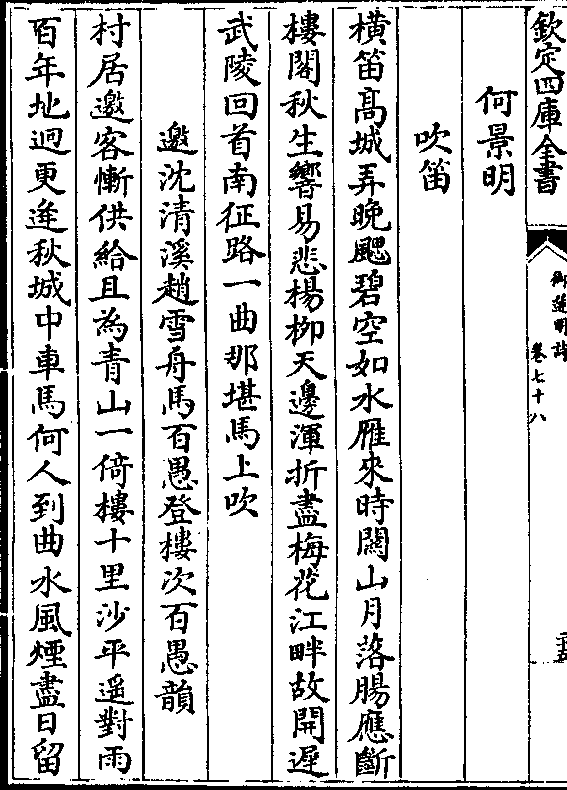 欽定四庫全書
御選明詩
卷七十八
何景明
吹笛
橫笛髙城弄晚颸碧空如水雁來時闗山月落腸應斷
樓閣秋生響易悲楊柳天邊渾折盡梅花江畔故開遲
武陵回首南征路一曲那堪馬上吹
邀沈清溪趙雪舟馬百愚登樓次百愚韻
村居邀客慚供給且為青山一倚樓十里沙平遥對雨
百年地迥更逢秋城中車馬何人到曲水風煙盡日留